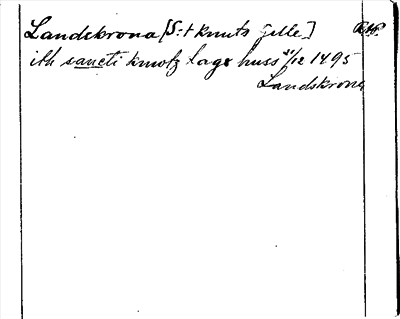 Landskrona [S:t Knuts gille]
ith sancti knwtz lags huss 21/12 1495
Landskrona